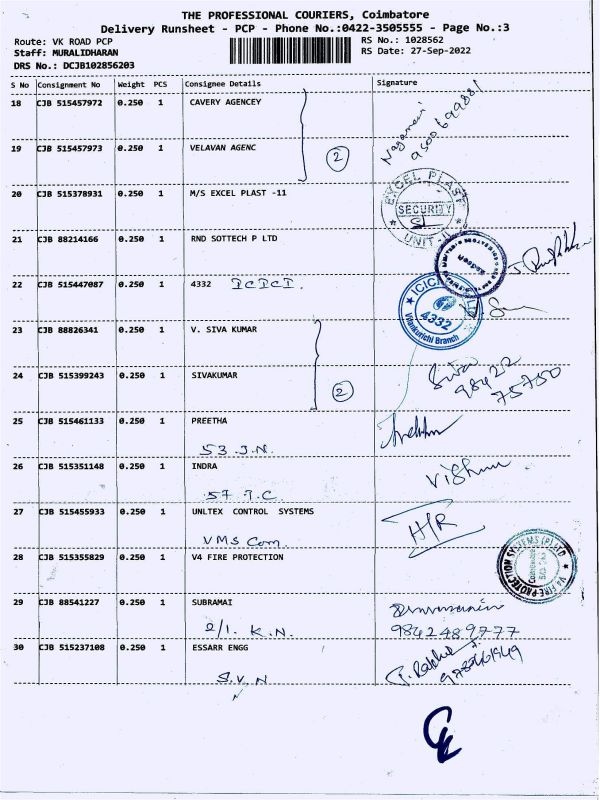 THE PROFESSIONAL COURIERS, Coimbatore
Delivery Runsheet - PCP - Phone No.:0422-3505555 - Page No.:3
Route: VK ROAD PCP RS No.: 1028562
Staff: MURALIDHARAN RS Date: 27-Sep-2022
DRS No.: DCJB102856203
S No Consignment No Weight PCS Consignee Details Signature
18 CJB 515457972 0.250 1 CAVERY AGENCEY
19 CJB 515457973 0.250 1 VELAVAN AGENC 2
20 CJB 515378931 0.250 1 M/S EXCEL PLAST -11 EXCEL PLAST SECURITY UNIT-II
21 CJB 88214166 0.250 1 RND SOTTECH P LTD
22 CJB 515447087 0.250 1 4332 ICICI. ICICI 4332 Vilankurichi Branch
23 CJB 88826341 0.250 1 V. SIVA KUMAR
24 CJB 515399243 0.250 1 SIVAKUMAR 2 Siva 98422 75750
25 CJB 515461133 0.250 1 PREETHA
53 J.N.
26 CJB 515351148 0.250 1 INDRA Vishnu
57 J.C.
27 CJB 515455933 0.250 1 UNLTEX CONTROL SYSTEMS H/R
VMS Com.
28 CJB 515355829 0.250 1 V4 FIRE PROTECTION V4 FIRE PROTECTION SYSTEMS (P) LTD
29 CJB 88541227 0.250 1 SUBRAMAI
2/1. K.N. 9842489777
30 CJB 515237108 0.250 1 ESSARR ENGG
S.V.N